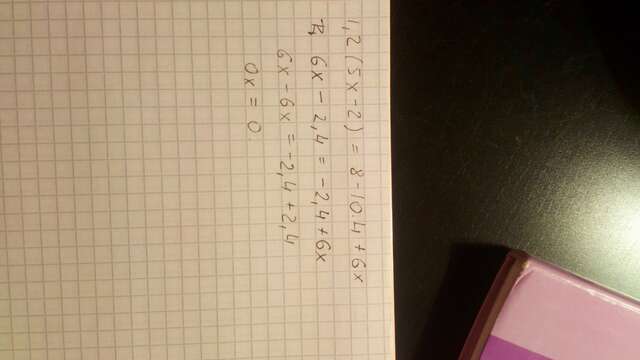 1,2(5x-2) = 8-10.4+6x
6x-2,4 = -2,4+6x
6x-6x = -2,4+2,4
0x = 0.